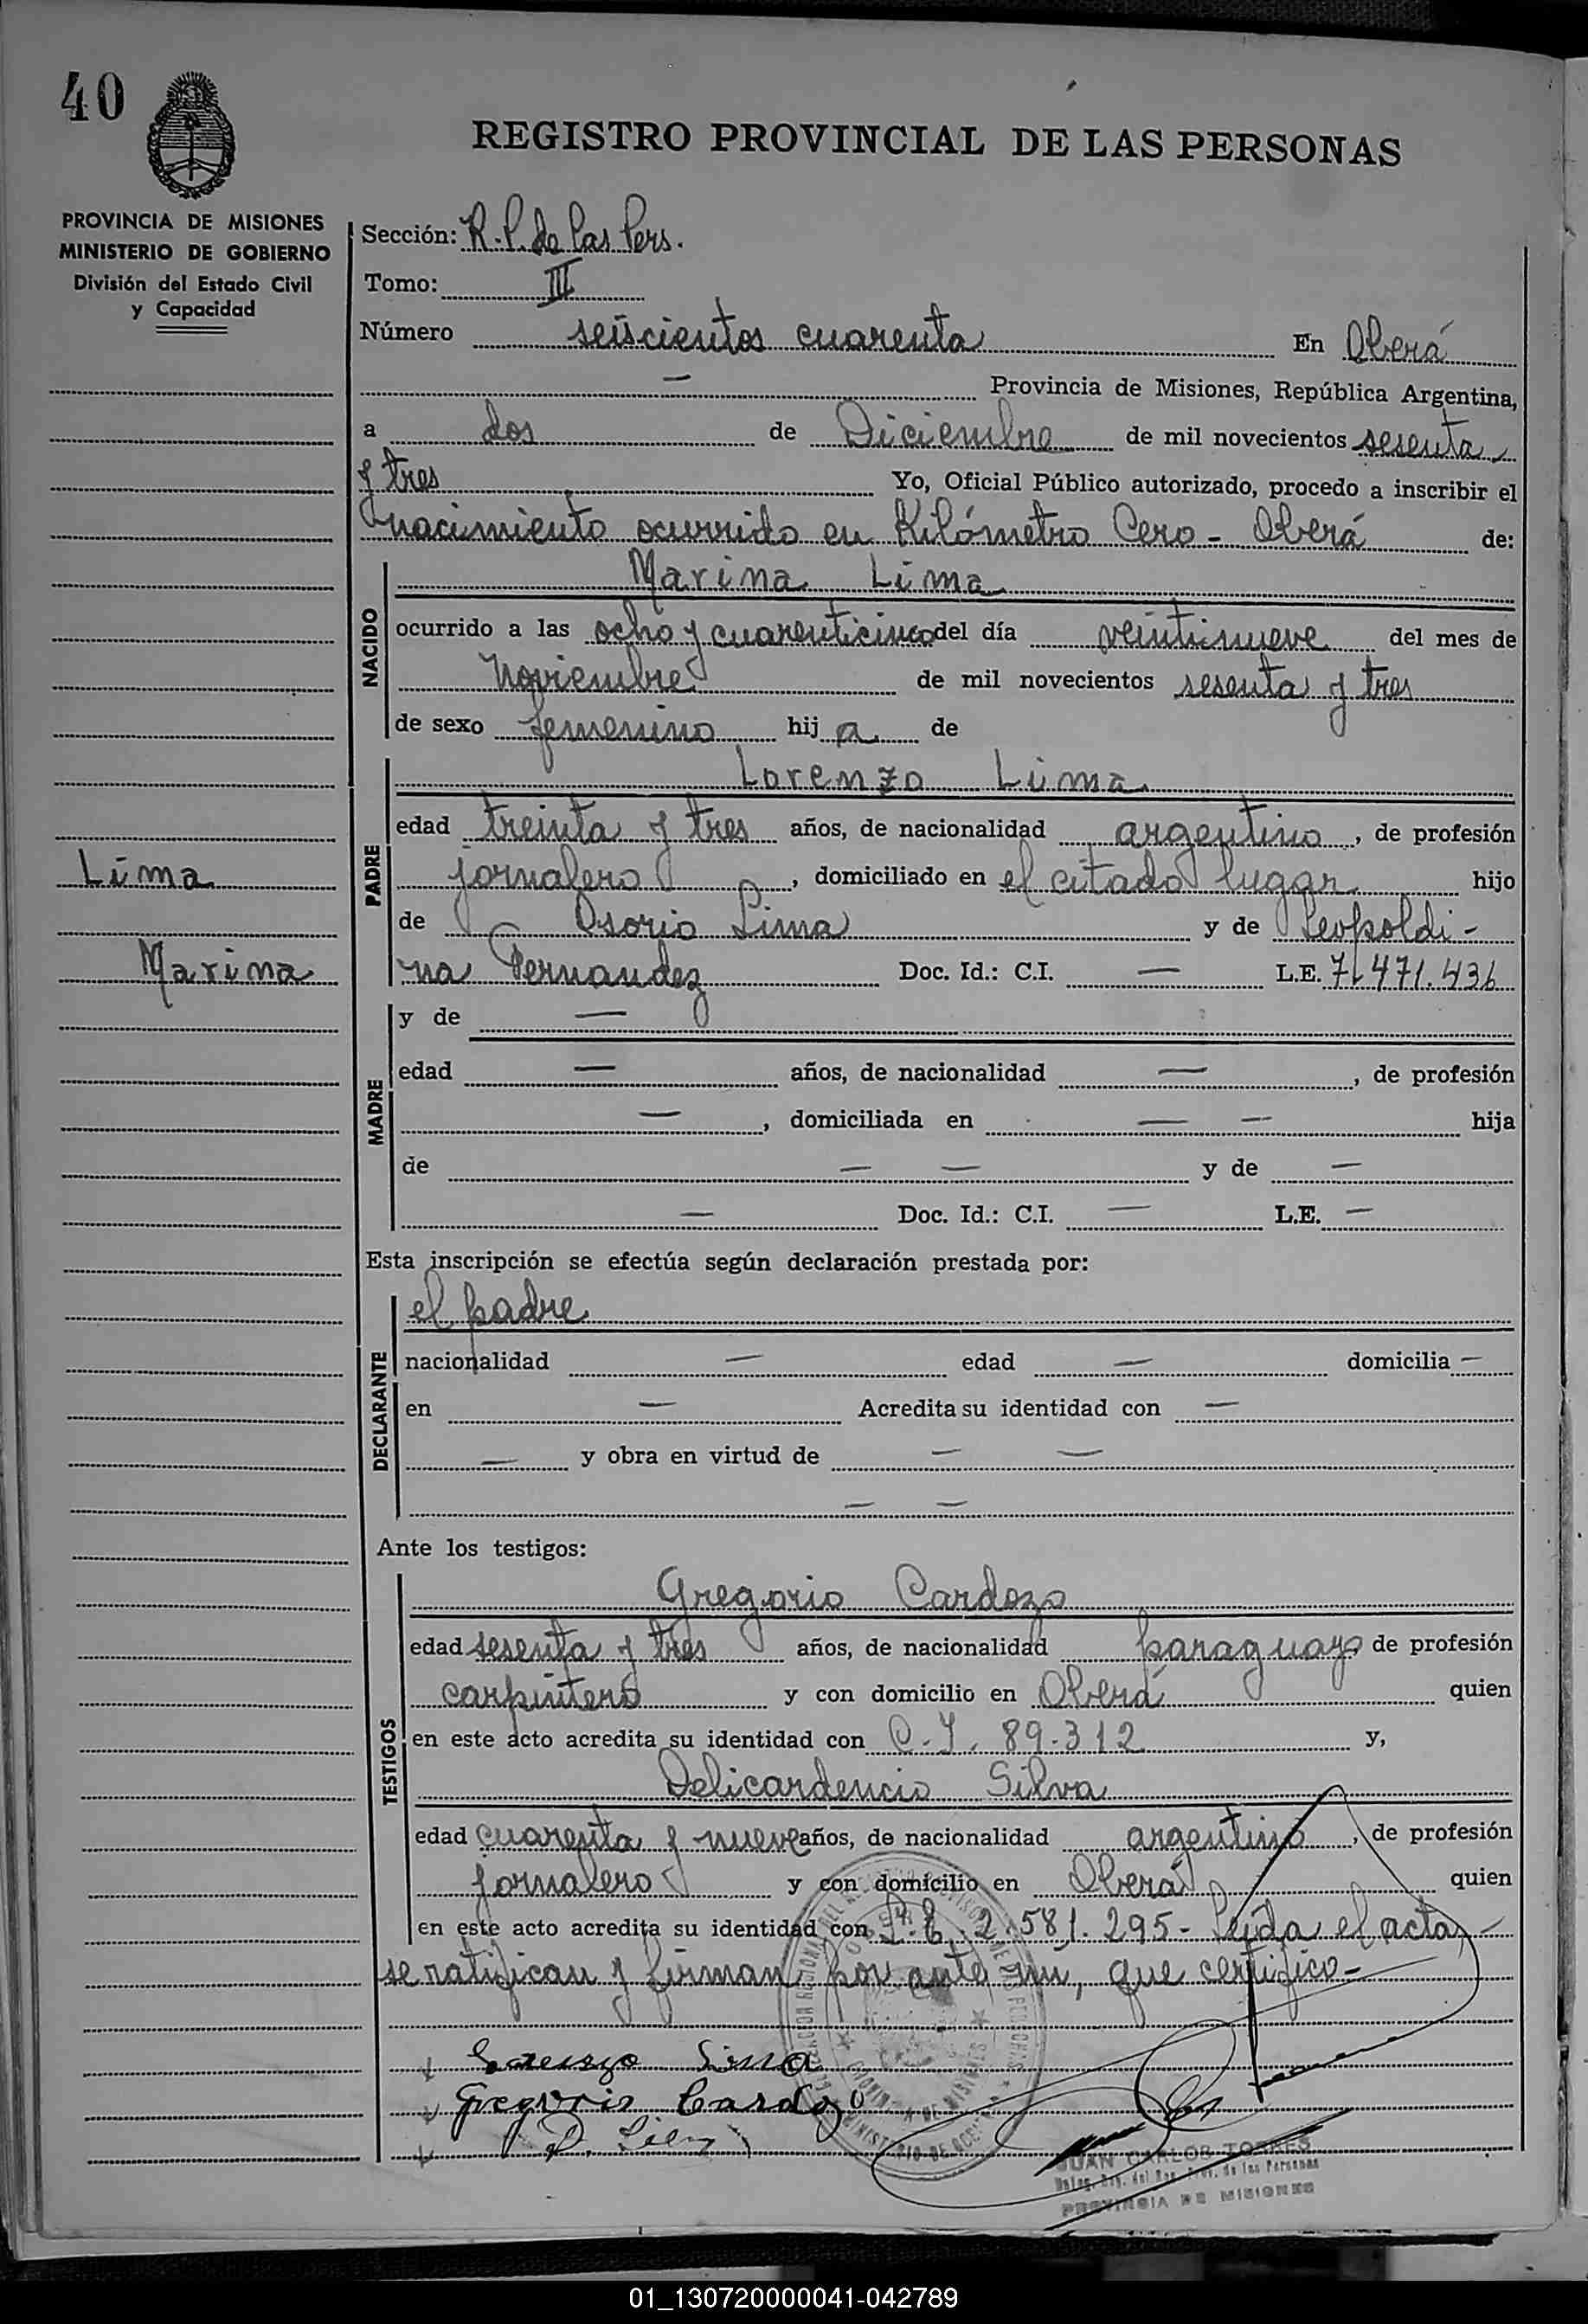 40
REGISTRO PROVINCIAL DE LAS PERSONAS
PROVINCIA DE MISIONES
MINISTERIO DE GOBIERNO
División del Estado Civil
y Capacidad
Sección: R.P. de las Pers.
Tomo: III
Número seiscientos cuarenta En Oberá
— Provincia de Misiones, República Argentina,
a dos de Diciembre de mil novecientos sesenta
y tres Yo, Oficial Público autorizado, procedo a inscribir el
nacimiento ocurrido en Kilómetro Cero - Oberá de:
NACIDO
Marina Lima
ocurrido a las ocho y cuarenticinco del día veintinueve del mes de
Noviembre de mil novecientos sesenta y tres
de sexo femenino hija de
PADRE
Lorenzo Lima
edad treinta y tres años, de nacionalidad argentino, de profesión
jornalero, domiciliado en el citado lugar hijo
de Osorio Lima y de Leopoldi-
na Fernandez Doc. Id.: C.I. — L.E. 7.471.436
Lima
Marina
MADRE
y de —
edad — años, de nacionalidad —, de profesión
—, domiciliada en — — hija
de — — y de —
— Doc. Id.: C.I. — L.E. —
Esta inscripción se efectúa según declaración prestada por:
DECLARANTE
el padre
nacionalidad — edad — domicilia —
en — Acredita su identidad con —
— y obra en virtud de — —
— —
Ante los testigos:
TESTIGOS
Gregorio Cardozo
edad sesenta y tres años, de nacionalidad paraguayo de profesión
carpintero y con domicilio en Oberá quien
en este acto acredita su identidad con C.I. 89.312 y,
Delicardencio Silva
edad cuarenta y nueve años, de nacionalidad argentino, de profesión
jornalero y con domicilio en Oberá quien
en este acto acredita su identidad con L.E. 2.581.295- Leída el acta,-
se ratifican y firman por ante mi, que certifico-
Lorenzo Lima
Gregorio Cardozo
D.
JUAN CARLOS TORRES
Deleg. Reg. del Reg. Prov. de las Personas
PROVINCIA DE MISIONES
01_130720000041-042789